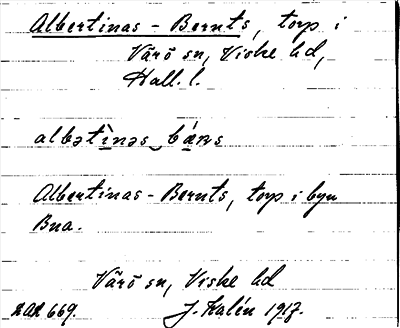 Albertinas - Bernts, torp i
Värö sn, Viske hd,
Hall. l.
albətìnəs bá
Albertinas - Bernts, torp i byn
Bua.
Värö sn, Viske hd
669. J. Kalén 1917.